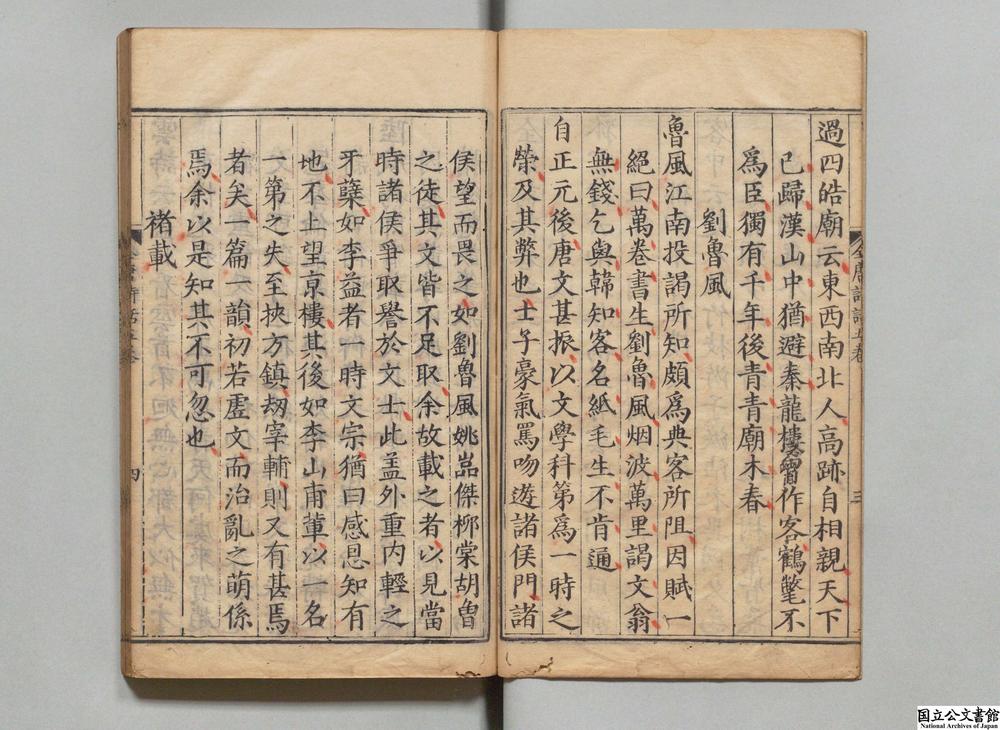 過四皓廟云東西南北人高跡自相親天下
已歸漢山中猶避秦龍樓曾作客鶴氅不
爲臣獨有千年後青青廟木春
劉魯風
魯風江南投謁所知頗爲典客所阻因賦一
絕曰萬卷書生劉魯風烟波萬里謁文翁
無錢乞與韓知客名紙毛生不肯通
自正元後唐文甚振以文學科第爲一時之
榮及其弊也士子豪氣罵吻遊諸侯門諸
侯望而畏之如劉魯風姚嵓傑柳棠胡曾
之徒其文皆不足取余故載之者以見當
時諸侯爭取譽於文士此盖外重内輕之
牙蘖如李益者一時文宗猶曰感恩知有
地不上望京樓其後如李山甫軰以一名
一第之失至挾方鎮刼宰輔則又有甚焉
者矣一篇一韻初若虛文而治亂之萌係
焉余以是知其不可忽也
褚載
三
四
国立公文書館
National Archives of Japan